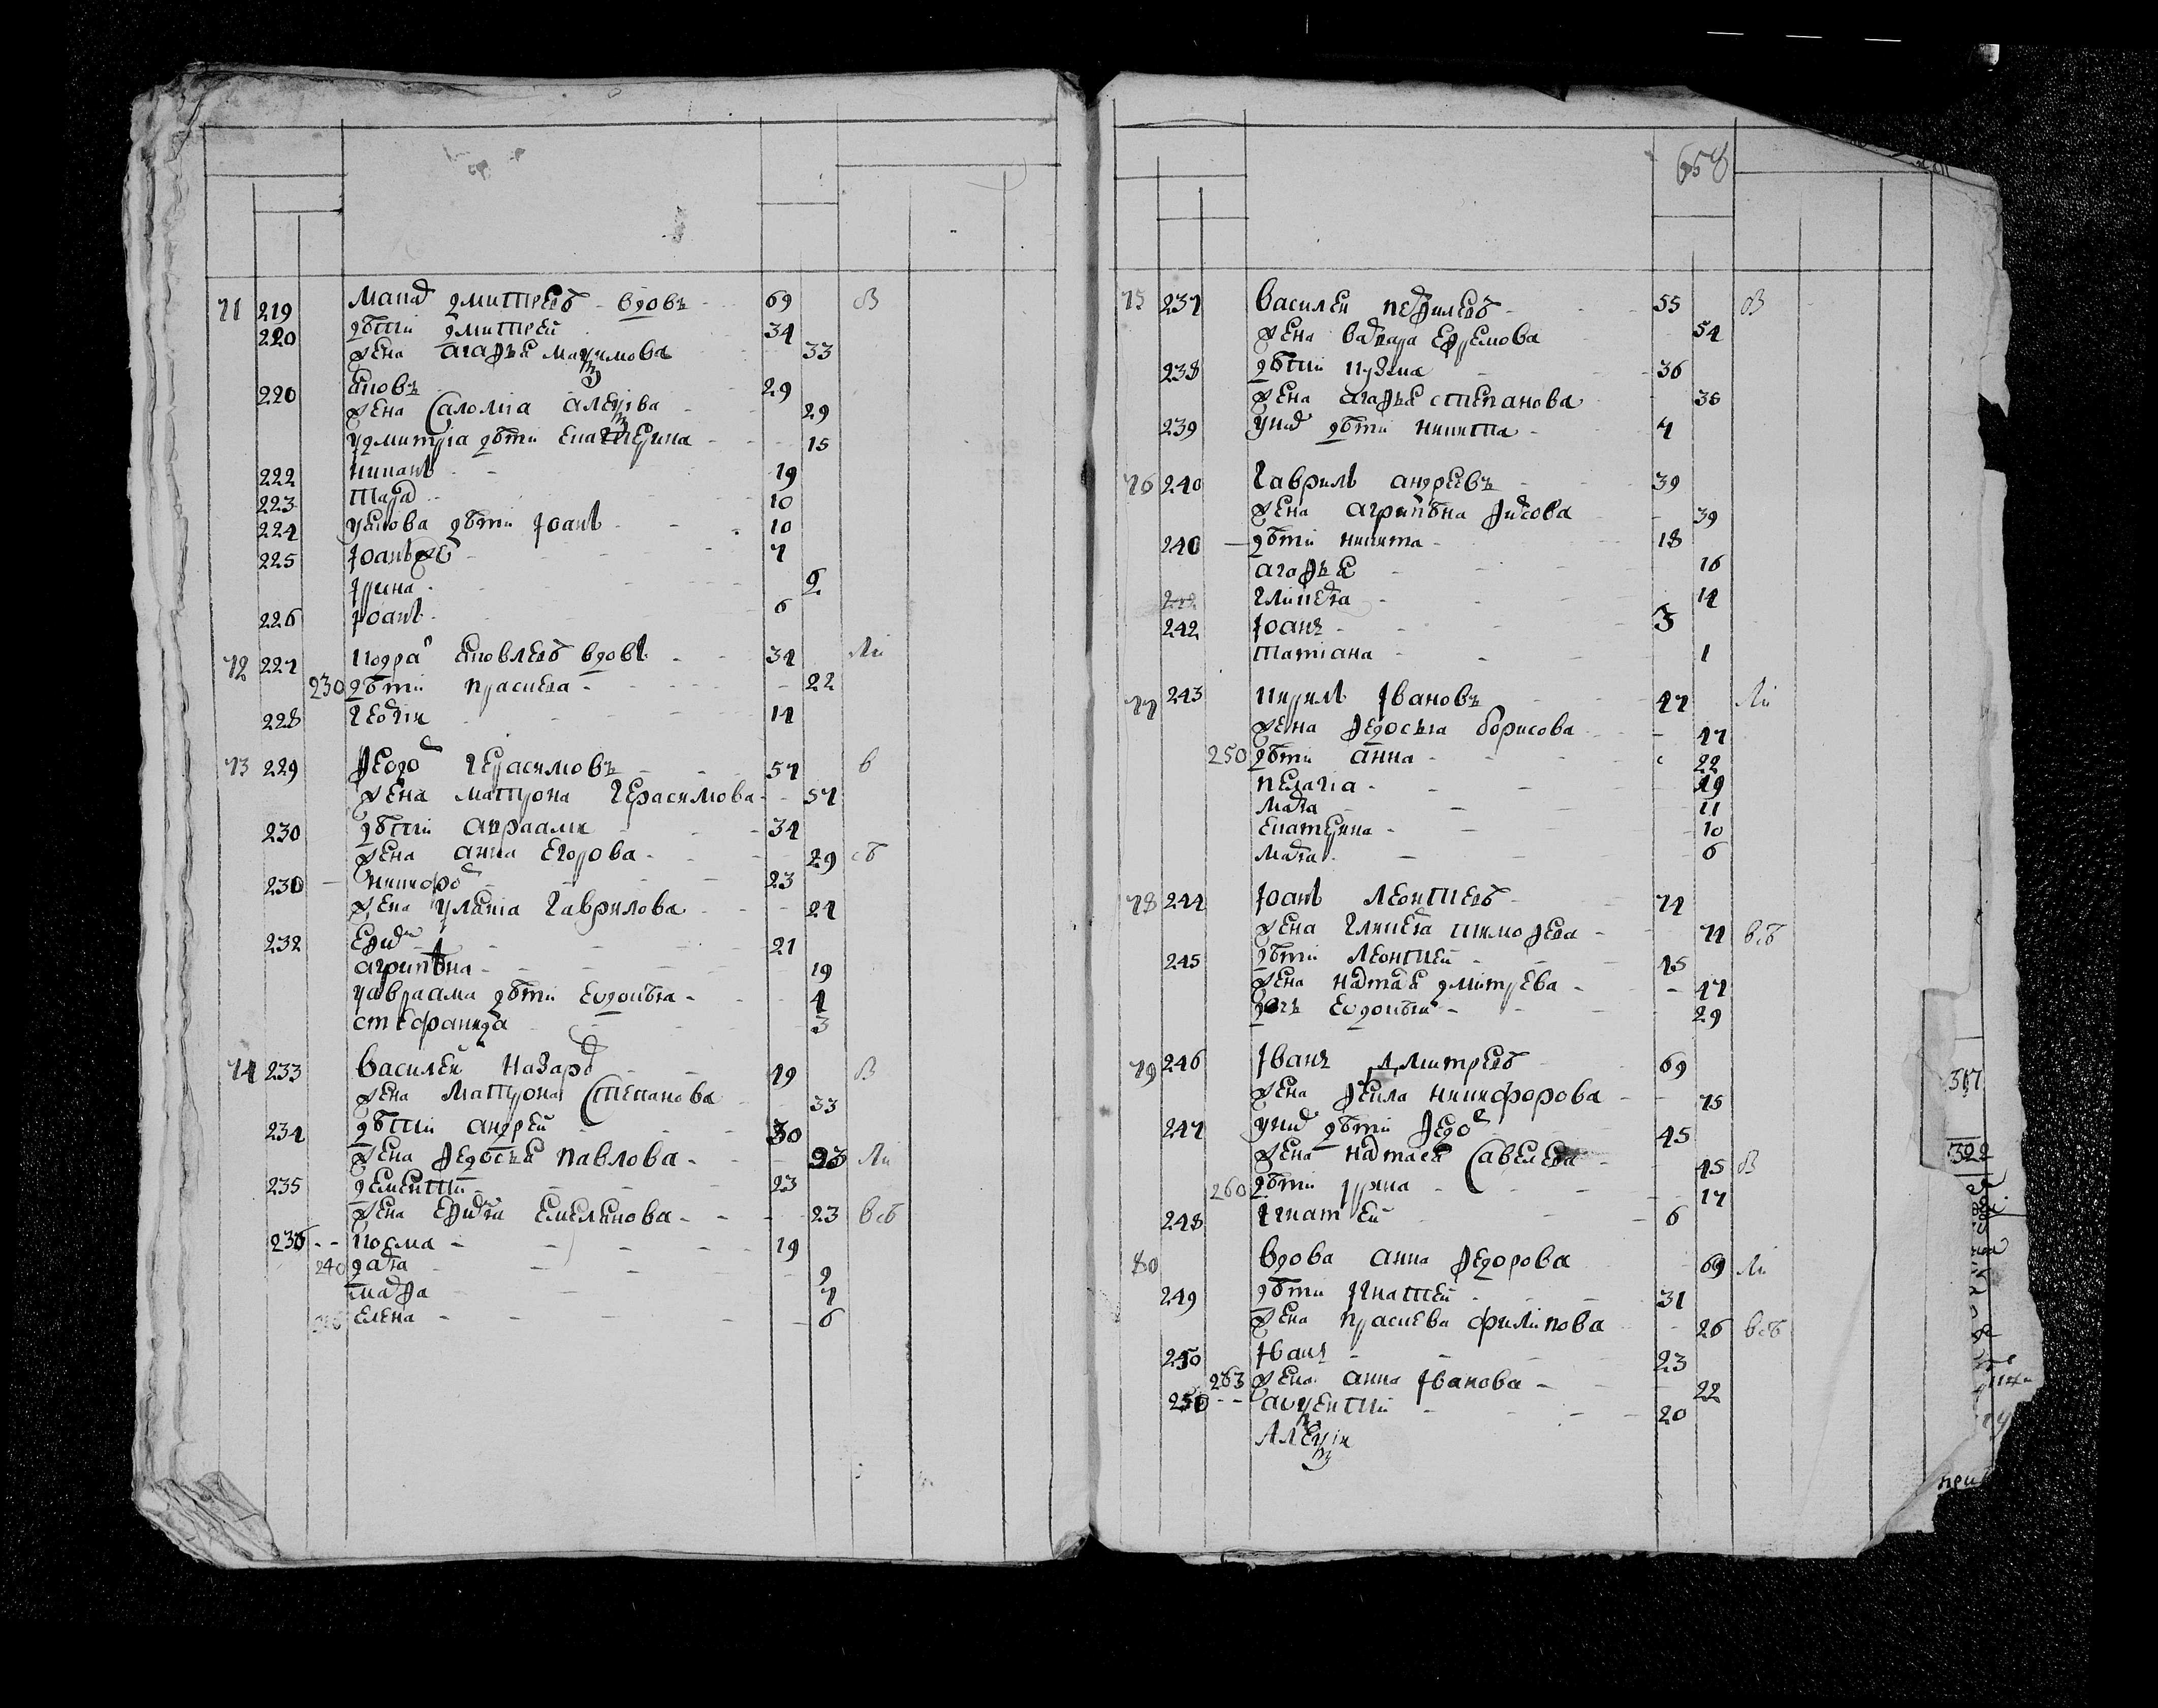 71 219 Макаръ дмитреевъ вдовъ 69 В
220 дѣти дмитрей 34
жена агафья маѯимова 33
220 яковъ 29
жена Саломіа алеѯіева 29
удмитріа дѣти екатерина 15
222 никаноръ 19
223 тарас 10
224 уякова дѣти Іоанъ 10
225 Іоанъ же 7
Ірина 9
226 Іоанъ 6
72 227 кодратъ яковлевъ вдовъ 34 Ли
230 дѣти прасковья 22
228 георгіи 14
73 229 Ѳеодоръ герасимовъ 57 в
жена матрона герасимова 57
230 дѣти авраами 34
жена анна егорова 29 сб
230 никифоръ 23
жена улянія гаврилова 24
232 Ефимъ 21
агрипѣна 19
уавраама дѣти евдокѣа 4
стефанида 3
74 233 василей назаровъ 49 В
жена матрона Степанова 33
234 дѣти андрей 30
жена Ѳедосья павлова 23 Ли
235 дементій 23
жена Ефимья емелянова 23 всб
236 косма 19
240 дарья 9
марѳа 7
елена 6
658
75 237 василей перѳилевъ 55 В
жена варвара ефремова 54
238 дѣти кузма 36
жена агафья степанова 36
239 унихъ дѣти никита 4
76 240 гаврилъ андреевъ 39
жена агрипѣна Ѳирсова 39
240 дѣти никита 18
агаѳья 16
гликерья 14
242 Іоанъ 3
татіана 1
77 243 кирилъ Івановъ 47 Ли
жена Ѳедосья борисова 47
250 дѣти анна 22
пелагіа 19
марья 11
екатерина 10
марья 6
78 244 Іоанъ леонтиевъ 74
жена гликерья тимоѳева 71 всб
245 дѣти леонтией 45
жена наталья дмитрева 47
дочь евдокѣя 29
79 246 Іванъ дмитревъ 69
жена Ѳекла никифорова 75
247 унихъ дѣти Ѳедоръ 45
жена наталья Савелева 45 В
260 дѣти Ірина 17
248 Ігнатей 6
80 вдова анна Ѳедорова 69 Ли
249 дѣти Ігнатей 31
жена прасковья филипова 26 всб
250 Іванъ 23
263 жена анна Іванова 22
250 авѯентій 20
Алеѯіи
317
322